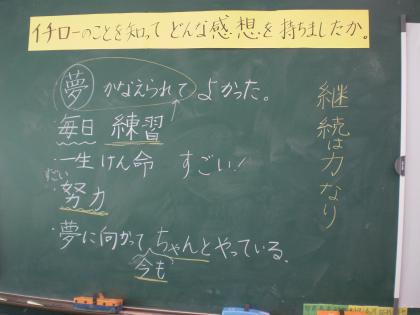 イチローのことを知ってどんな感想を持ちましたか。
夢がかなえられてよかった。
・毎日 練習
・一生けん命 すごい!
すごい
・努力
・夢に向かってちゃんとやっている。
今も
継続は力なり